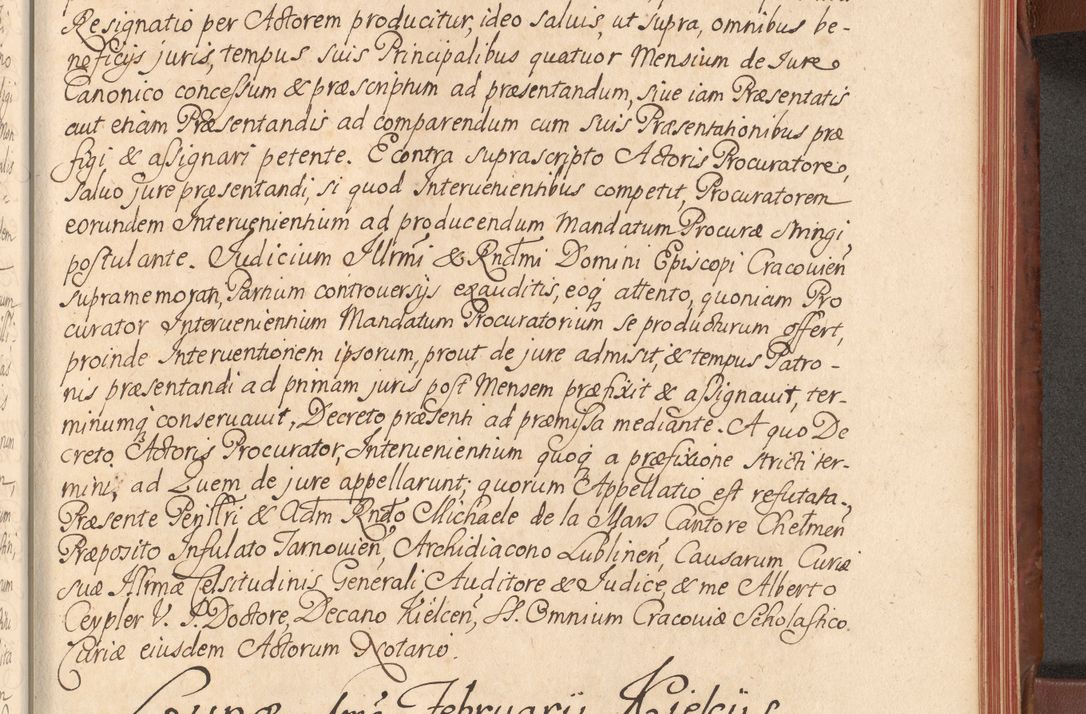 Resignatio per Actorem producitur, ideo salvis, ut supra, omnibus be-
neficijs juris, tempus suis Principalibus quatuor Mensium de Jure
Canonico concessum & præscriptum ad præsentandum, sive iam Præsentatis
aut etiam Præsentandis ad comparendum cum suis Præsentationibus præ
figi & assignari petente. E contra suprascripto Actoris Procuratore,
salvo jure præsentandi, si quod Intervenientibus competit, Procuratorem
eorundem Intervenientium ad producendum Mandatum Procuræ stringi
postulante. Judicium Illrmi & Rndmi Domini Episcopi Cracovien
supramemorati, Partium controversijs exauditis, eoq attento, quoniam Pro
curator Intervenientium Mandatum Procuratorium se producturum offert,
proinde Interventionem ipsorum, prout de jure admisit, & tempus Patro-
nis præsentandi ad primam juris post Mensem præfixit & assignavit, ter-
minumq conservavit, Decreto præsenti ad præmissa mediante. A quo De
creto Actoris Procurator, Intervenientium quoq a præfixione stricti ter-
mini, ad Quem de jure appellarunt, quorum Appellatio est refutata,
Præsente Perillri & Adm Rndo Michaele de la Mars Cantore Chelmen
Præposito Infulato Tarnovien, Archidiacono Lublinen, Causarum Curiæ
suæ Illrmæ Celsitudinis Generali Auditore & Judice, & me Alberto
Ceypler V. J. Doctore, Decano Kielcen, SS. Omnium Cracoviæ Scholastico.
Curiæ eiusdem Actorum Notario.
Februarii Kielcijs